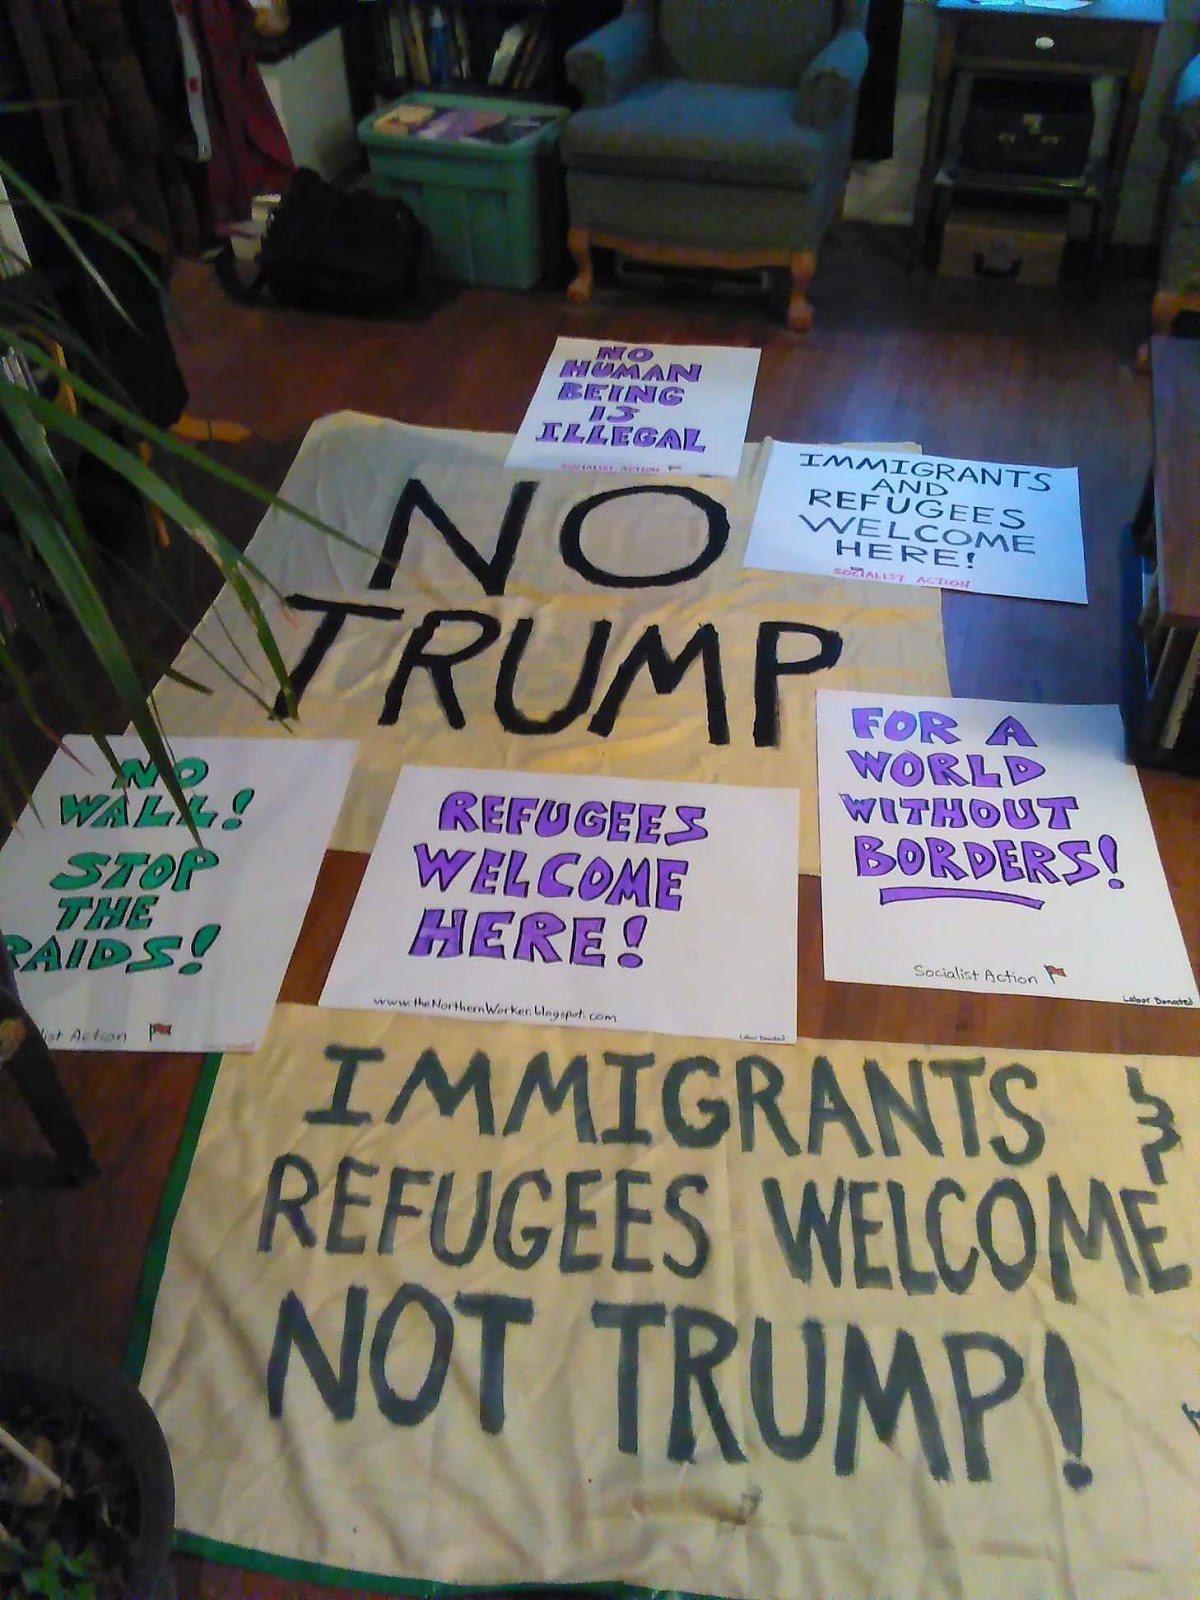 NO
HUMAN
BEING
IS
ILLEGAL
SOCIALIST ACTION
IMMIGRANTS
AND
REFUGEES
WELCOME
HERE!
SOCIALIST ACTION
NO
TRUMP
FOR A
WORLD
WITHOUT
BORDERS!
Socialist Action
Labor Donated
NO
WALL!
STOP
THE
RAIDS!
ist Action
REFUGEES
WELCOME
HERE!
www.theNorthernWorker.blogspot.com
Labor Donated
IMMIGRANTS &
REFUGEES WELCOME
NOT TRUMP!